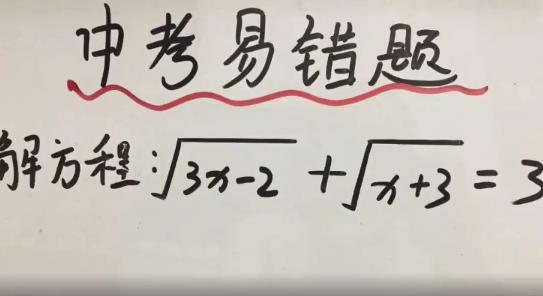 中考易错题
解方程:√(3x-2) + √(x+3) = 3